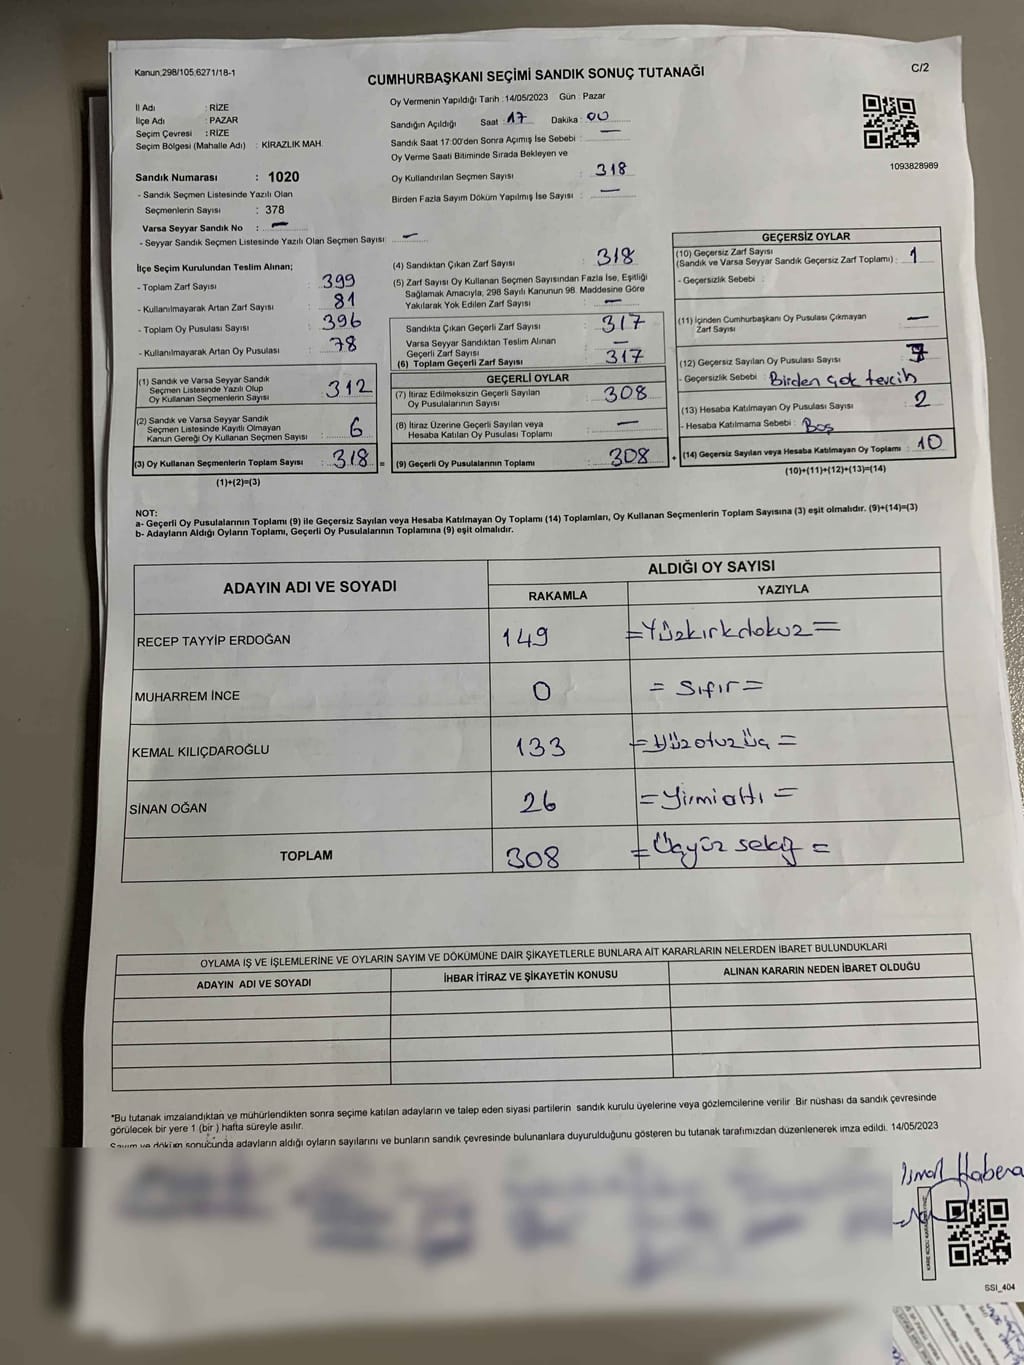 Kanun,298/105,6271/18-1
CUMHURBAŞKANI SEÇİMİ SANDIK SONUÇ TUTANAĞI
C/2
İl Adı : RİZE
İlçe Adı : PAZAR
Seçim Çevresi : RİZE
Seçim Bölgesi (Mahalle Adı) : KİRAZLIK MAH.
Oy Vermenin Yapıldığı Tarih : 14/05/2023 Gün : Pazar
Sandığın Açıldığı Saat : 17 Dakika : 00
Sandık Saat 17:00'den Sonra Açımış İse Sebebi : —
Oy Verme Saati Bitiminde Sırada Bekleyen ve
Oy Kullandırılan Seçmen Sayısı : 318
Birden Fazla Sayım Döküm Yapılmış İse Sayısı : —
1093828989
Sandık Numarası : 1020
- Sandık Seçmen Listesinde Yazılı Olan
Seçmenlerin Sayısı : 378
Varsa Seyyar Sandık No : —
- Seyyar Sandık Seçmen Listesinde Yazılı Olan Seçmen Sayısı : —
İlçe Seçim Kurulundan Teslim Alınan;
- Toplam Zarf Sayısı : 399
- Kullanılmayarak Artan Zarf Sayısı : 81
- Toplam Oy Pusulası Sayısı : 396
- Kullanılmayarak Artan Oy Pusulası : 78
(1) Sandık ve Varsa Seyyar Sandık
Seçmen Listesinde Yazılı Olup
Oy Kullanan Seçmenlerin Sayısı : 312
(2) Sandık ve Varsa Seyyar Sandık
Seçmen Listesinde Kayıtlı Olmayan
Kanun Gereği Oy Kullanan Seçmen Sayısı : 6
(3) Oy Kullanan Seçmenlerin Toplam Sayısı : 318 =
(1)+(2)=(3)
(4) Sandıktan Çıkan Zarf Sayısı : 318
(5) Zarf Sayısı Oy Kullanan Seçmen Sayısından Fazla İse, Eşitliği
Sağlamak Amacıyla, 298 Sayılı Kanunun 98. Maddesine Göre
Yakılarak Yok Edilen Zarf Sayısı : —
Sandıkta Çıkan Geçerli Zarf Sayısı : 317
Varsa Seyyar Sandıktan Teslim Alınan
Geçerli Zarf Sayısı : —
(6) Toplam Geçerli Zarf Sayısı : 317
GEÇERLİ OYLAR
(7) İtiraz Edilmeksizin Geçerli Sayılan
Oy Pusulalarının Sayısı : 308
(8) İtiraz Üzerine Geçerli Sayılan veya
Hesaba Katılan Oy Pusulası Toplamı : —
(9) Geçerli Oy Pusulalarının Toplamı : 308 +
GEÇERSİZ OYLAR
(10) Geçersiz Zarf Sayısı
(Sandık ve Varsa Seyyar Sandık Geçersiz Zarf Toplamı) : 1
- Geçersizlik Sebebi :
(11) İçinden Cumhurbaşkanı Oy Pusulası Çıkmayan
Zarf Sayısı : —
(12) Geçersiz Sayılan Oy Pusulası Sayısı : 7
- Geçersizlik Sebebi : Birden çok tercih
(13) Hesaba Katılmayan Oy Pusulası Sayısı : 2
- Hesaba Katılmama Sebebi : Boş
(14) Geçersiz Sayılan veya Hesaba Katılmayan Oy Toplamı : 10
(10)+(11)+(12)+(13)=(14)
NOT:
a- Geçerli Oy Pusulalarının Toplamı (9) ile Geçersiz Sayılan veya Hesaba Katılmayan Oy Toplamı (14) Toplamları, Oy Kullanan Seçmenlerin Toplam Sayısına (3) eşit olmalıdır. (9)+(14)=(3)
b- Adayların Aldığı Oyların Toplamı, Geçerli Oy Pusulalarının Toplamına (9) eşit olmalıdır.
ADAYIN ADI VE SOYADI
ALDIĞI OY SAYISI
RAKAMLA YAZIYLA
RECEP TAYYİP ERDOĞAN 149 =Yüzkırkdokuz=
MUHARREM İNCE 0 = Sıfır =
KEMAL KILIÇDAROĞLU 133 =Yüzotuzüç =
SİNAN OĞAN 26 = Yirmialtı =
TOPLAM 308 = Üçyüz sekiz =
OYLAMA İŞ VE İŞLEMLERİNE VE OYLARIN SAYIM VE DÖKÜMÜNE DAİR ŞİKAYETLERLE BUNLARA AİT KARARLARIN NELERDEN İBARET BULUNDUKLARI
ADAYIN ADI VE SOYADI İHBAR İTİRAZ VE ŞİKAYETİN KONUSU ALINAN KARARIN NEDEN İBARET OLDUĞU
*Bu tutanak imzalandıktan ve mühürlendikten sonra seçime katılan adayların ve talep eden siyasi partilerin sandık kurulu üyelerine veya gözlemcilerine verilir .Bir nüshası da sandık çevresinde
görülecek bir yere 1 (bir ) hafta süreyle asılır.
Sayım ve döküm sonucunda adayların aldığı oyların sayılarını ve bunların sandık çevresinde bulunanlara duyurulduğunu gösteren bu tutanak tarafımızdan düzenlenerek imza edildi. 14/05/2023
SSI_404